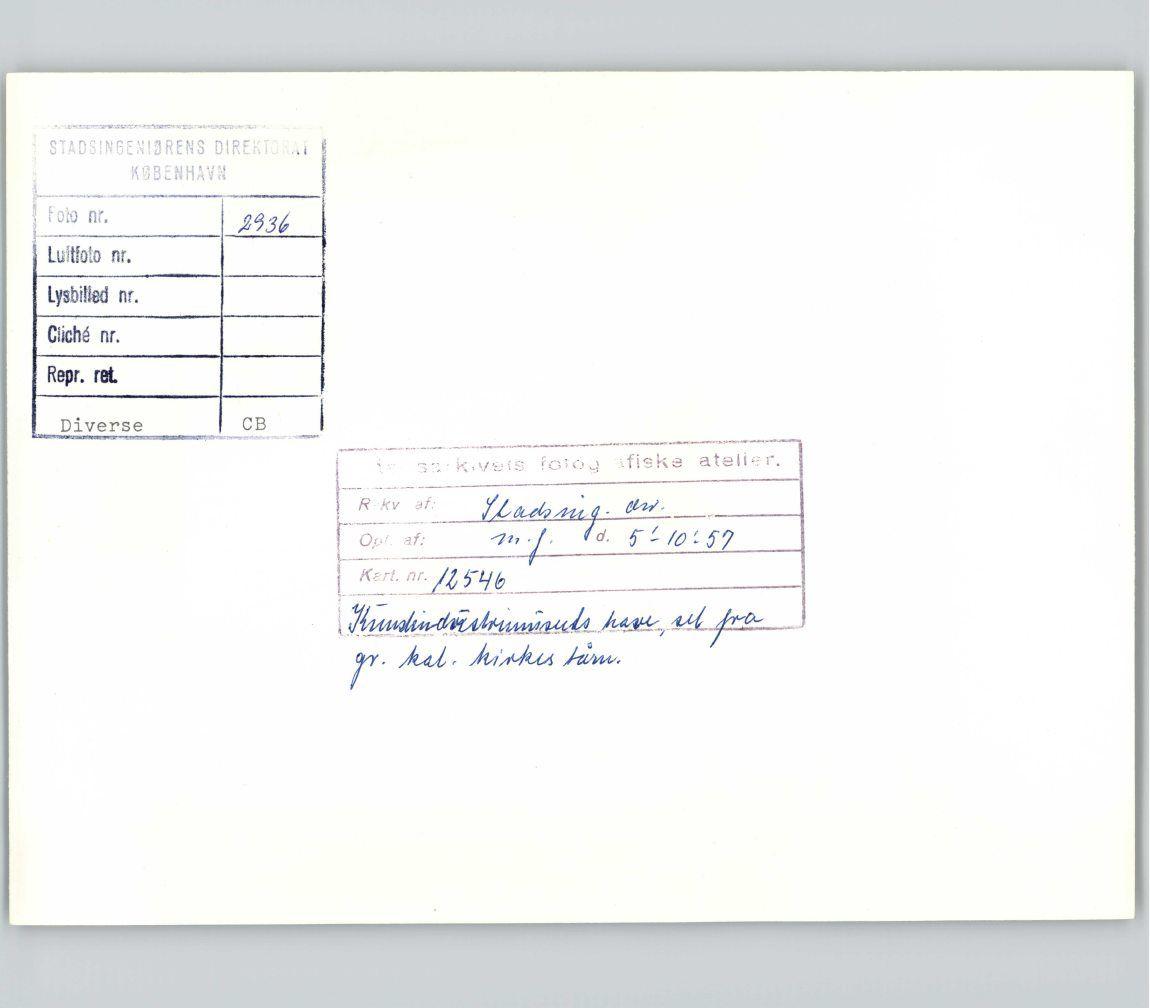 STADSINGENIØRENS DIREKTORAT
KØBENHAVN
Foto nr. 2936
Luftfoto nr.
Lysbilled nr.
Cliché nr.
Repr. ret.
Diverse CB
fotografiske atelier.
Rekv. af: Stadsing.
Opt. af: m.f. d. 5'-10'-57
Kart. nr. 12546
Kunstindustrimuseets have, set fra
gr. kat. kirkes tårn.